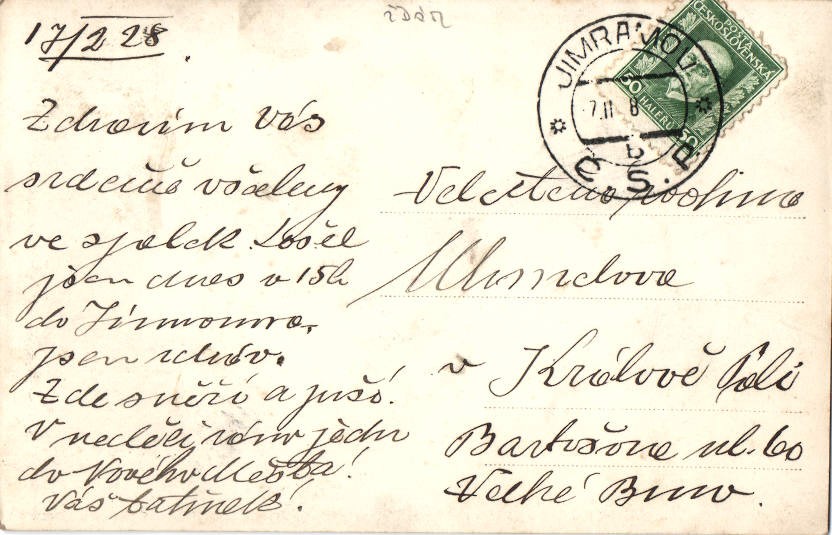 ždár
17/2 28.
JIMRAMOV
7.II 8
b
Č.S.P.
POŠTA
ČESKOSLOVENSKÁ
50 HALERŮ 50
Zdravím Vás
srdečně všechny
ve spolek. Došel
jsem dnes v 15h
do Jimramova.
jsem zdráv.
Zde sněží a prší!
V neděli ráno jedu
do Nového Města!
Váš tatínek!
Velectěná rodina
v Králově Poli
Bartošova ul. 60
Velké Brno.